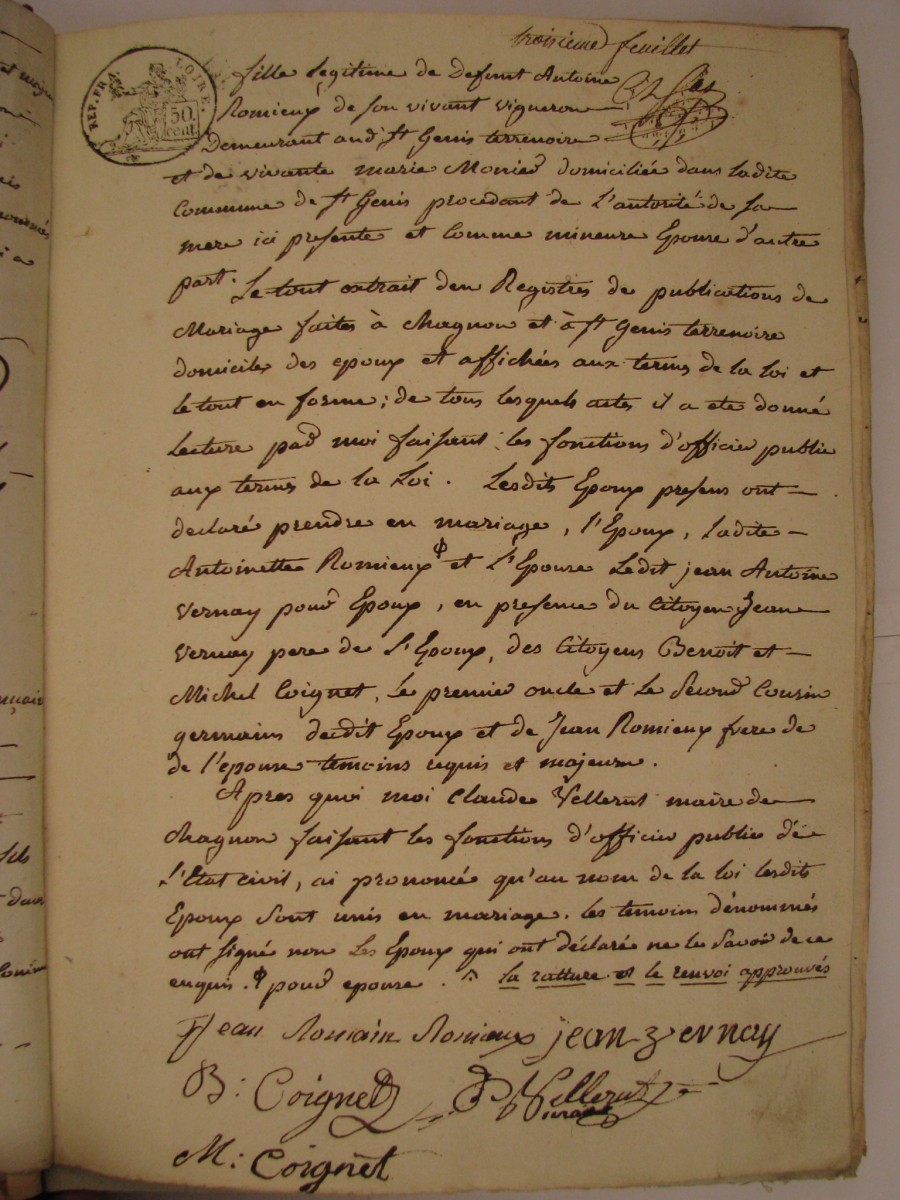 troisieme feuillet
REP. FRA. LOIRE
50 cent
fille legitime de defunt Antoine
Romieux de son vivant vigneron
Demeurant aud. st Genis terrenoire
et de vivante marie Monier domiciliée dans ladite
Commune de st Genis procedant de L'autorité de sa
mere ici presente et comme mineure Epouse d'autre
part.
Le tout extrait deu Registres de publications de
Mariage faites à chagnon et à st Genis terrenoire
domiciles des epoux et affichées aux terms de la loi et
le tout en forme; de tous lesquels actes il a ete donné
Lecture par moi faisant les fonctions d'officier public
aux terms de la Loi. Lesdits Epoux presens ont
declaré prendre en mariage, l'Epoux, ladite
Antoinette Romieux ϕ et L'Epouse Ledit jean Antoine
Vernay pour Epoux, en presence du Citoyen Jean
Vernay pere de L'Epoux, des Citoyens Benoit et
Michel Coignet, Le premier oncle et Le Second Cousin
germains dudit Epoux et de Jean Romieux frere de
de l'epouse temoins requis et majeurs.
Apres quoi moi Claude Vellerut maire de
chagnon faisant les fonctions d'officier public de
L'Etat civil, ai prononcé qu'au nom de la loi lesdits
Epoux Sont unis en mariage. les temoins dénommés
ont signé non Les Epoux qui ont déclaré ne le Savoir de ce
enquis. ϕ pour epouse. la ratture et le renvoi approuvés
Jean Romain Romieux jean Vernay
B: Coignet Vellerut
M: Coignet